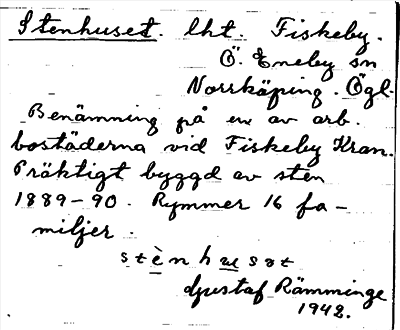 Stenhuset. lht. Fiskeby.
Ö. Eneby sn
Norrköping. Ögl.
Benämning på en av arb.
bostäderna vid Fiskeby Kran.
Präktigt byggd av sten
1889-90. Rymmer 16 fa-
miljer.
stènhusət
Gustaf Rämminge
1948.